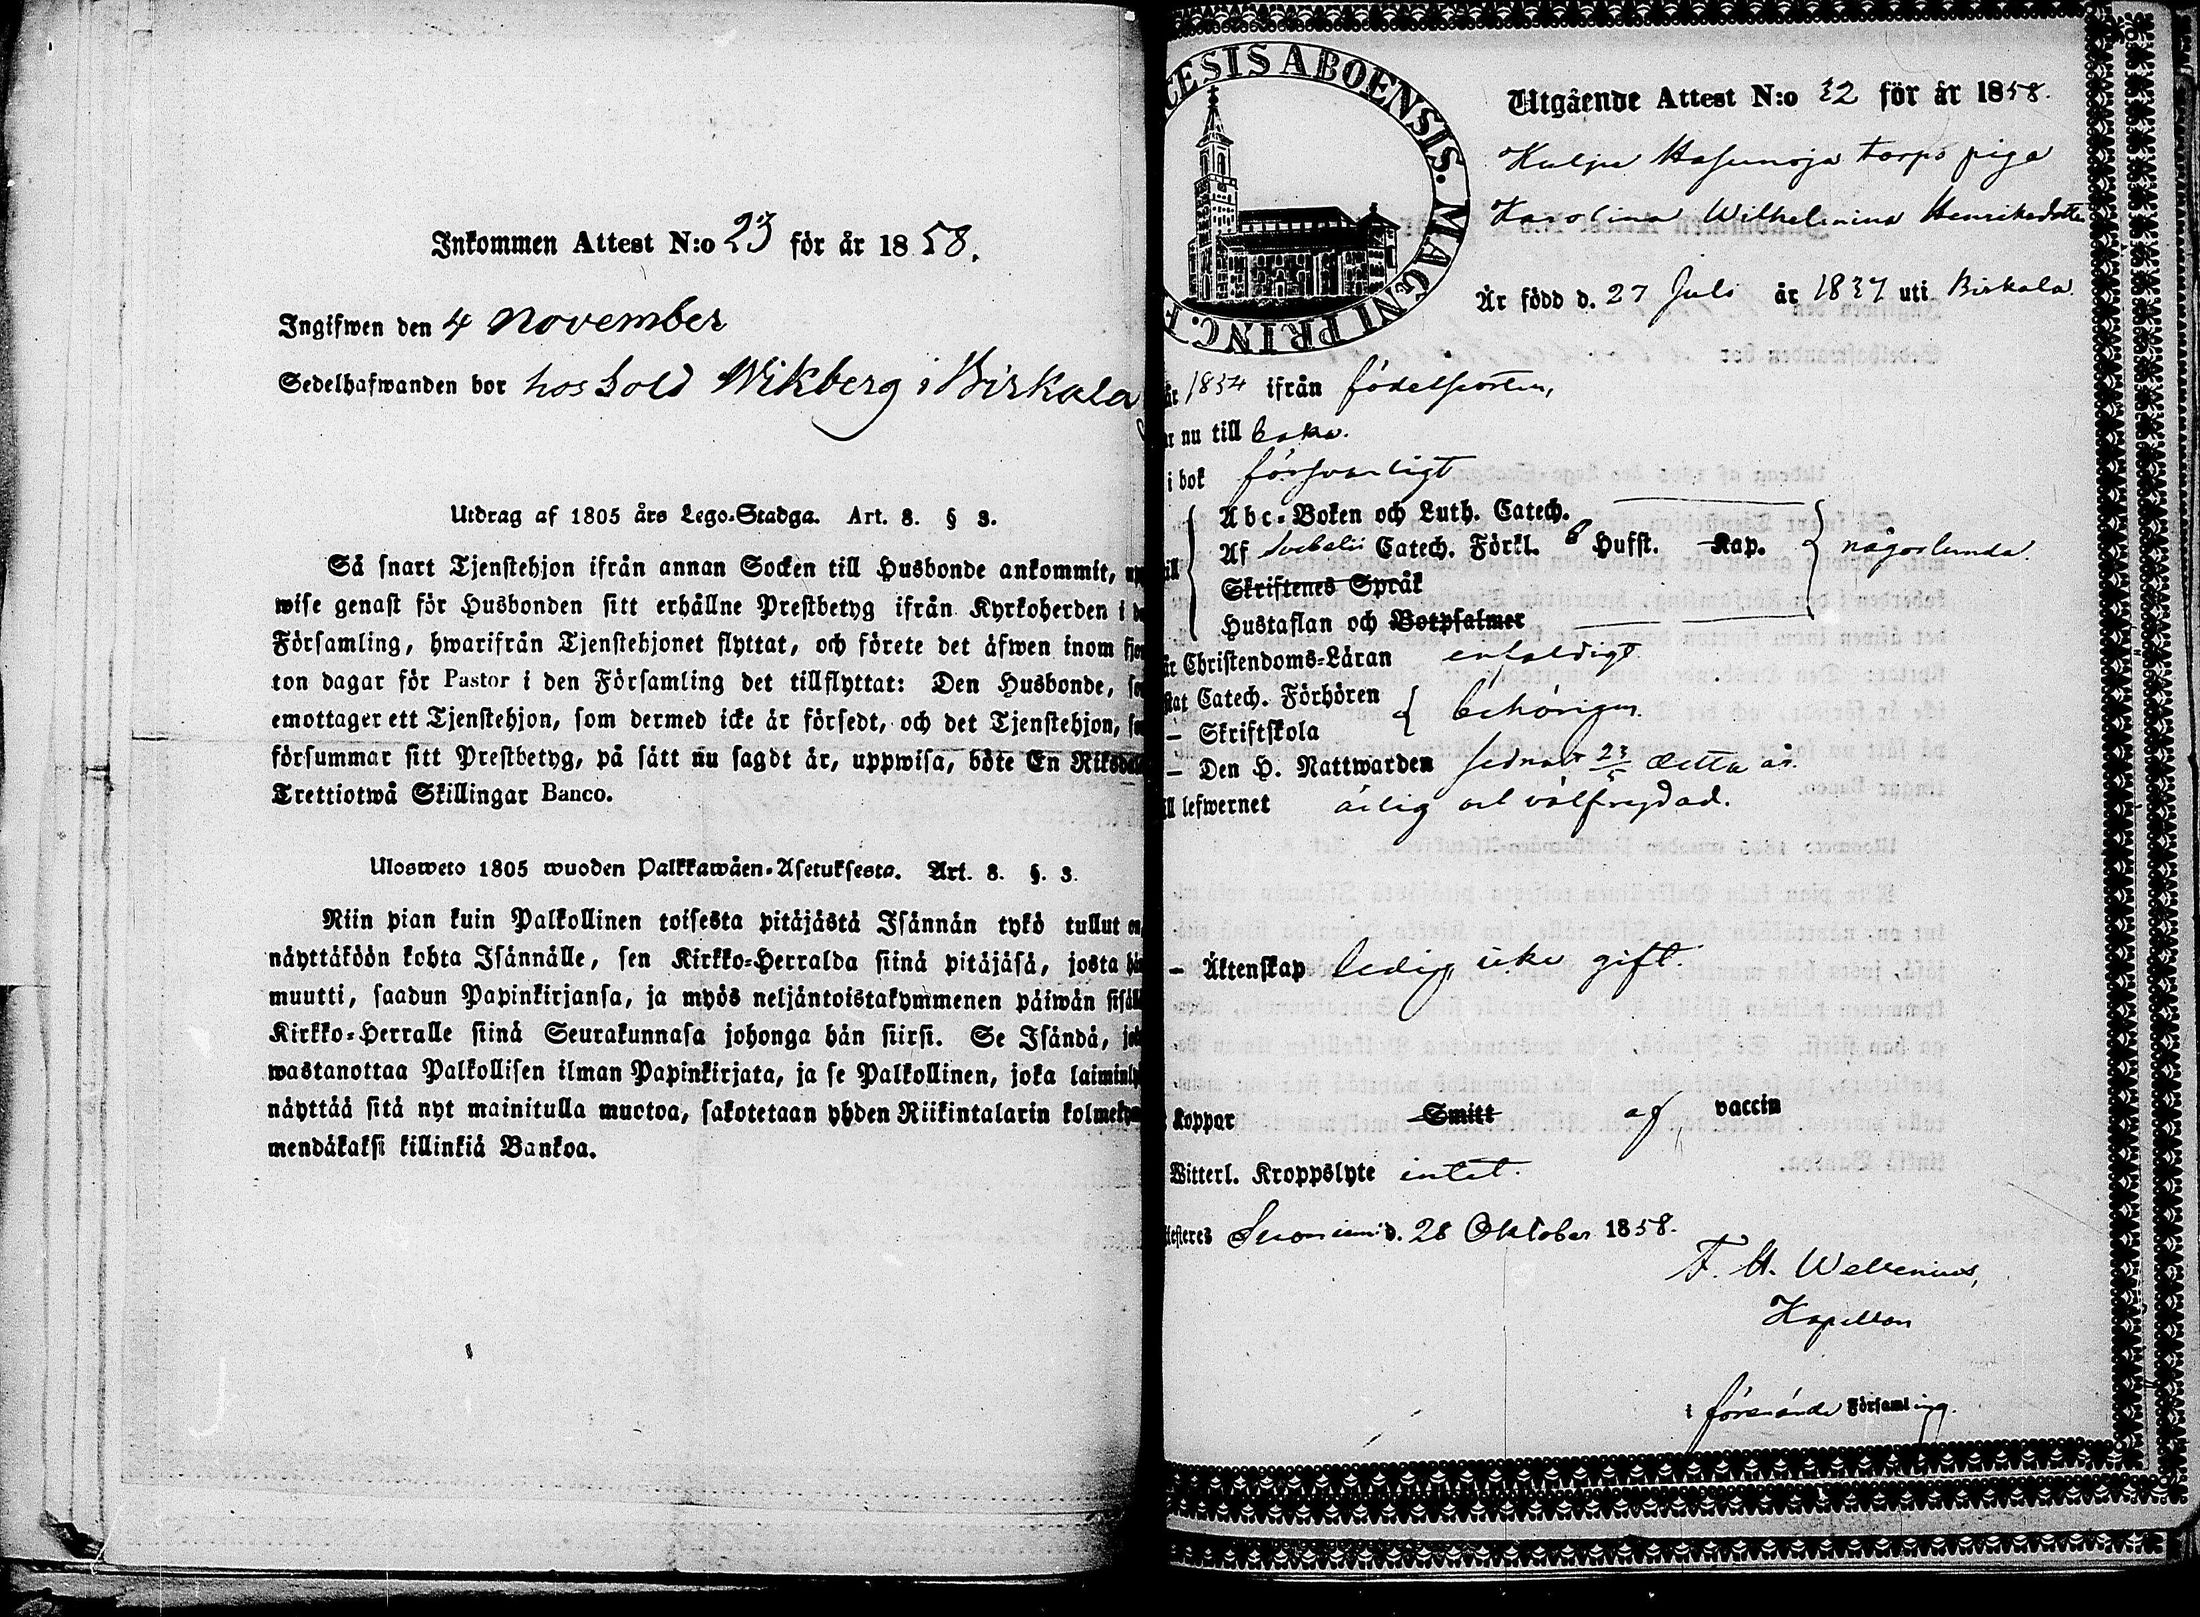 Inkommen Attest N:o 23 för år 1858.
Ingifwen den 4 November
Sedelhafwanden bor hos Sold Wikberg i Birkala
Utdrag af 1805 års Lego-Stadga. Art. 8. § 3.
Så snart Tjenstehjon ifrån annan Socken till Husbonde ankommit,
wise genast för Husbonden sitt erhållne Prestbetyg ifrån Kyrkoherden i
Församling, hwarifrån Tjenstehjonet flyttat, och förete det äfwen inom
ton dagar för Pastor i den Församling det tillflyttat: Den Husbonde,
emottager ett Tjenstehjon, som dermed icke är försedt, och det Tjenstehjon,
försummar sitt Prestbetyg, på sätt nu sagdt är, uppwisa, böte En
Trettiotwå Skillingar Banco.
Ulosweto 1805 wuoden Palkkawäen-Asetuksesta. Art. 8. §. 3.
Niin pian kuin Palkollinen toisesta pitäjästä Isännän tykö tullut
näyttäköön kohta Isännälle, sen Kirkko-Herralda siinä pitäjäsä, josta
muutti, saadun Papinkirjansa, ja myös neljäntoistakymmenen päiwän
Kirkko-Herralle siinä Seurakunnasa johonga hän siirsi. Se Isändä,
wastanottaa Palkollisen ilman Papinkirjata, ja se Palkollinen, joka
näyttää sitä nyt mainitulla muotoa, sakotetaan yhden Riikintalarin
mendäkaksi killinkiä Bankoa.
ESIS ABOENSIS. MAGNI PRINC. F
Utgående Attest N:o 32 för år 1858.
torps piga
Karolina Wilhelmina Henriksdotter
Är född d. 27 Juli år 1837 uti Birkala
1854 ifrån födelseorten,
nu till baka.
i bok försvarligt
Abc-Boken och Luth. Catech.
Af Svebelii Catech. Förkl. Hufst. Kap. någorlunda.
Skriftenes Språk
Hustaflan och Botpsalmer
Christendoms-Läran enfaldigt
Catech. Förhören behörigen.
– Skriftskola
– Den H. Nattwarden sednast 23/5 detta år.
lefwernet ärlig och välfrejdad.
– Äktenskap ledig icke gift.
Koppor Smitt af vaccin
Witterl. Kroppslyte intet.
Suoniemi d. 28 Oktober 1858.
F. H. Wellenius,
Kapellan
i förenämnde Församling.